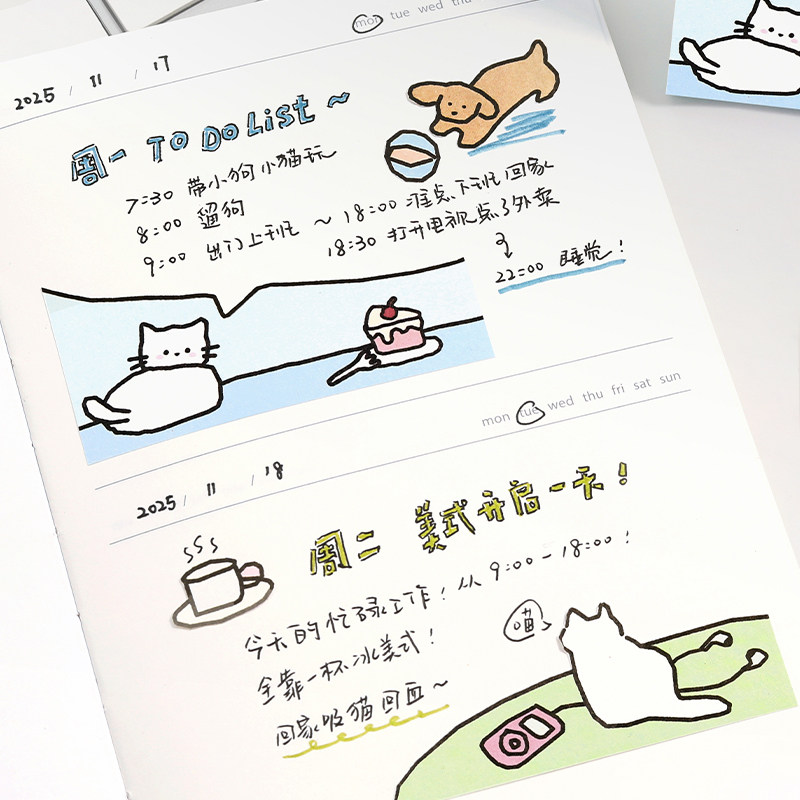 mon tue wed thu
2025 / 11 / 17
周一 TO DO List ~
7:30 带小狗小猫玩
8:00 遛狗
9:00 出门上班 ~ 18:00 准点下班回家
18:30 打开电视点了外卖
22:00 睡觉!
mon tue wed thu fri sat sun
2025 / 11 / 18
周二 美式开启一天!
今天的忙碌工作! 从 9:00-18:00!
全靠一杯冰美式!
回家吸猫回血~
喵